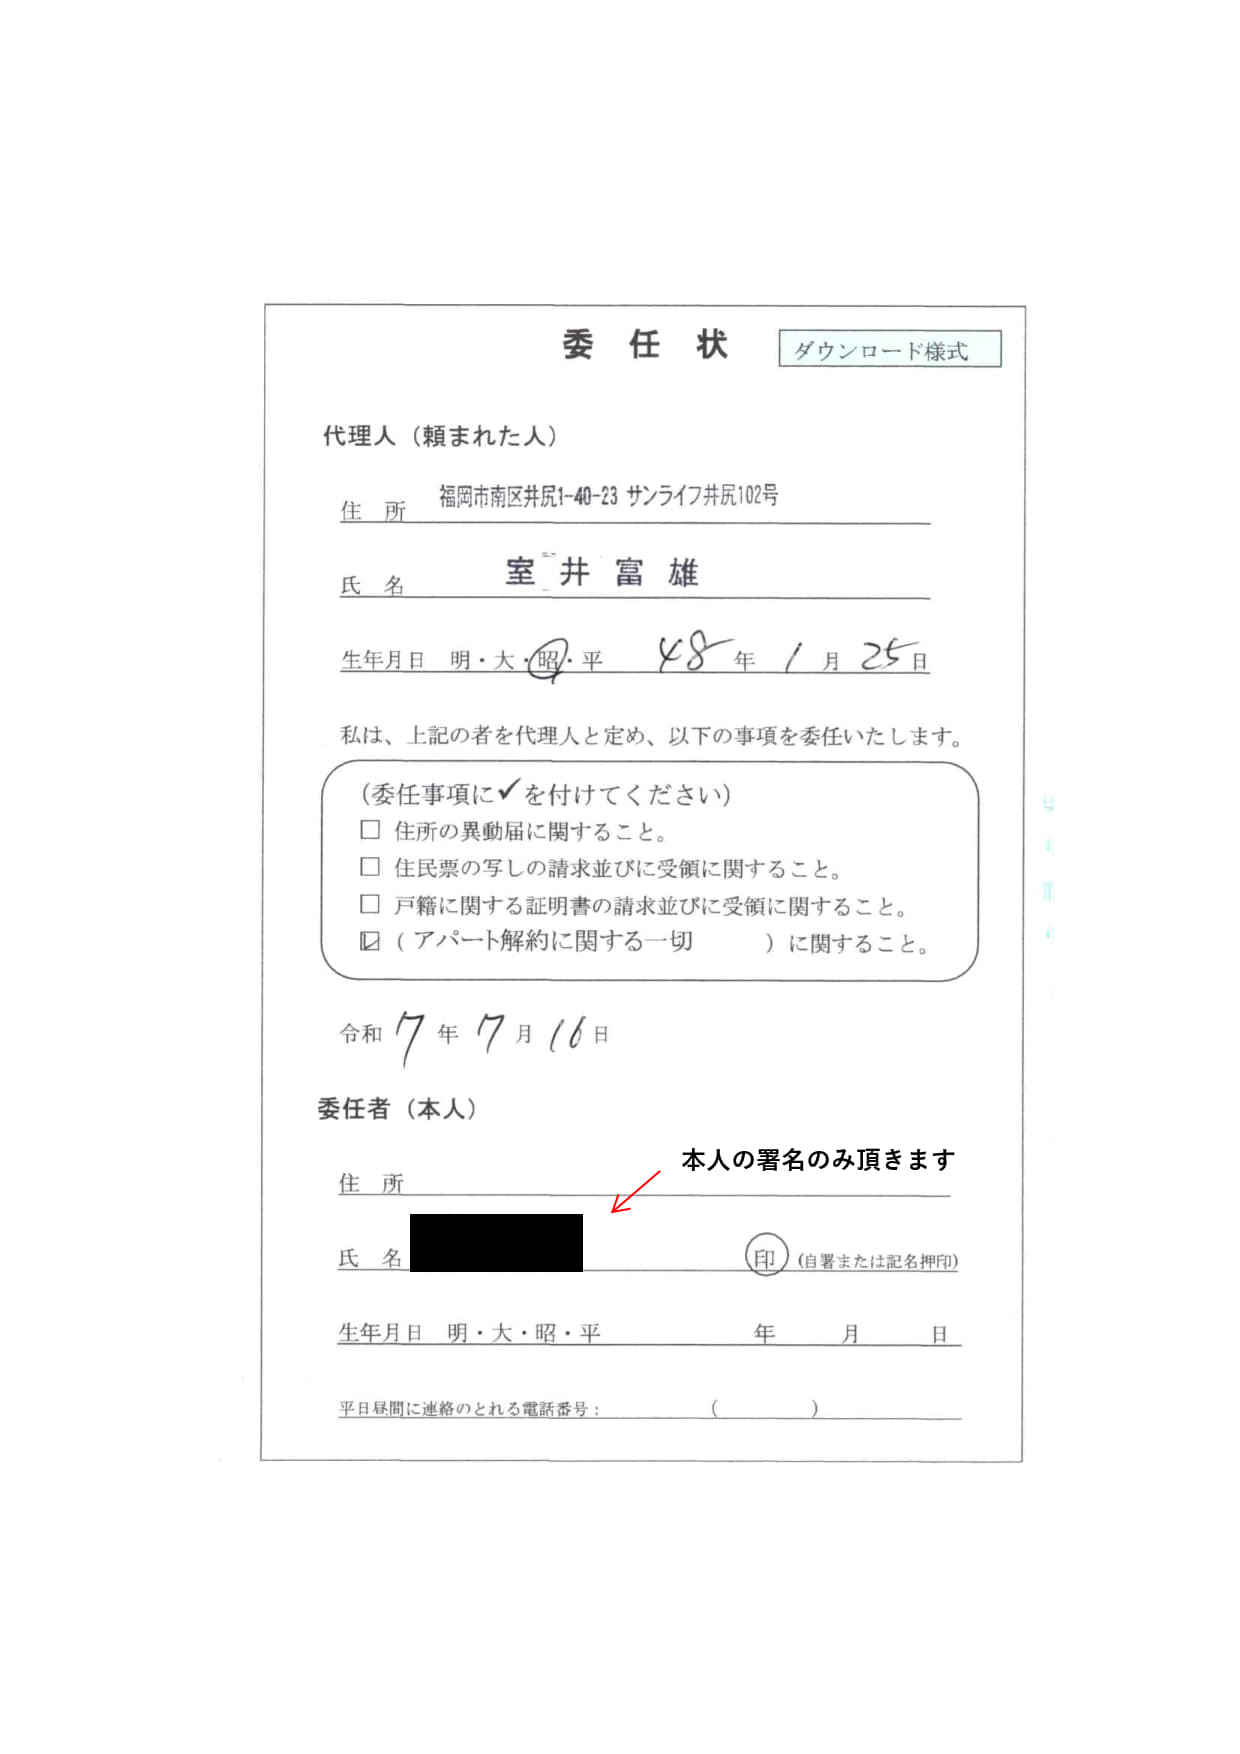 委 任 状
ダウンロード様式
代理人（頼まれた人）
住 所 福岡市南区井尻1-40-23 サンライフ井尻102号
氏 名 室 井 富 雄
生年月日 明・大・昭・平 48 年 1 月 25 日
私は、上記の者を代理人と定め、以下の事項を委任いたします。
（委任事項に✔を付けてください）
□ 住所の異動届に関すること。
□ 住民票の写しの請求並びに受領に関すること。
□ 戸籍に関する証明書の請求並びに受領に関すること。
☑（ アパート解約に関する一切 ）に関すること。
令和 7 年 7 月 16 日
委任者（本人）
本人の署名のみ頂きます
住 所
氏 名 印 (自署または記名押印)
生年月日 明・大・昭・平 年 月 日
平日昼間に連絡のとれる電話番号： （ ）